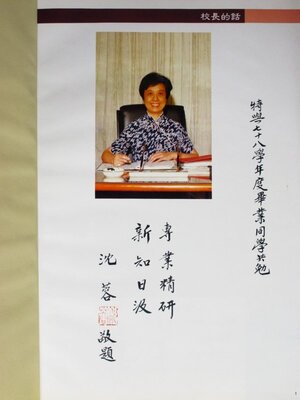 校長的話
特與七十八學年度畢業同學共勉
專業精研
新知日汲
沈蓉敬題